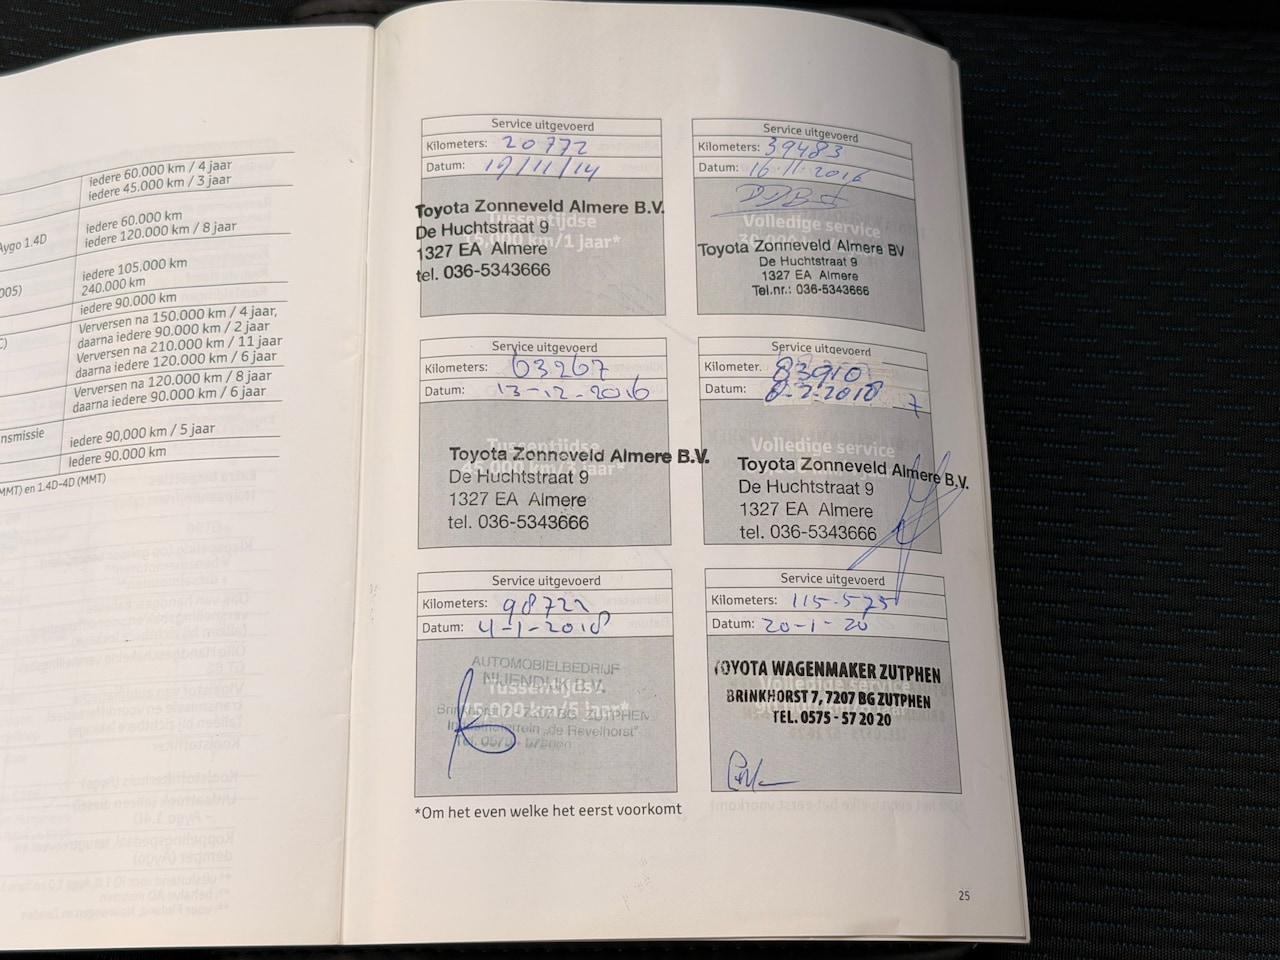 iedere 60.000 km / 4 jaar
iedere 45.000 km / 3 jaar
Aygo 1.4D
iedere 60.000 km
iedere 120.000 km / 8 jaar
005)
iedere 105.000 km
240.000 km
iedere 90.000 km
C)
Verversen na 150.000 km / 4 jaar,
daarna iedere 90.000 km / 2 jaar
Verversen na 210.000 km / 11 jaar
daarna iedere 120.000 km / 6 jaar
Verversen na 120.000 km / 8 jaar
daarna iedere 90.000 km / 6 jaar
nsmissie
iedere 90,000 km / 5 jaar
iedere 90.000 km
MMT) en 1.4D-4D (MMT)
Service uitgevoerd
Kilometers: 20772
Datum: 19/11/14
Tussentijdse
15.000 km/1 jaar*
Toyota Zonneveld Almere B.V.
De Huchtstraat 9
1327 EA Almere
tel. 036-5343666
Service uitgevoerd
Kilometers: 39483
Datum: 16-11-2016
Volledige service
Toyota Zonneveld Almere BV
De Huchtstraat 9
1327 EA Almere
Tel.nr.: 036-5343666
Service uitgevoerd
Kilometers: 63267
Datum: 13-12-2016
Tussentijdse
45.000 km/3 jaar*
Toyota Zonneveld Almere B.V.
De Huchtstraat 9
1327 EA Almere
tel. 036-5343666
Service uitgevoerd
Kilometer. 83910
Datum:
7
Volledige service
Toyota Zonneveld Almere B.V.
De Huchtstraat 9
1327 EA Almere
tel. 036-5343666
Service uitgevoerd
Kilometers: 98722
Datum: 4-1-2018
AUTOMOBIELBEDRIJF
NIJENDIJK B.V.
Tussentijds
75.000 km/5 jaar*
7207 BG ZUTPHEN
Industrieterrein „de Revelhorst"
Service uitgevoerd
Kilometers: 115.575
Datum: 20-1-20
Volledige service
TOYOTA WAGENMAKER ZUTPHEN
BRINKHORST 7, 7207 BG ZUTPHEN
TEL. 0575 - 57 20 20
*Om het even welke het eerst voorkomt
25